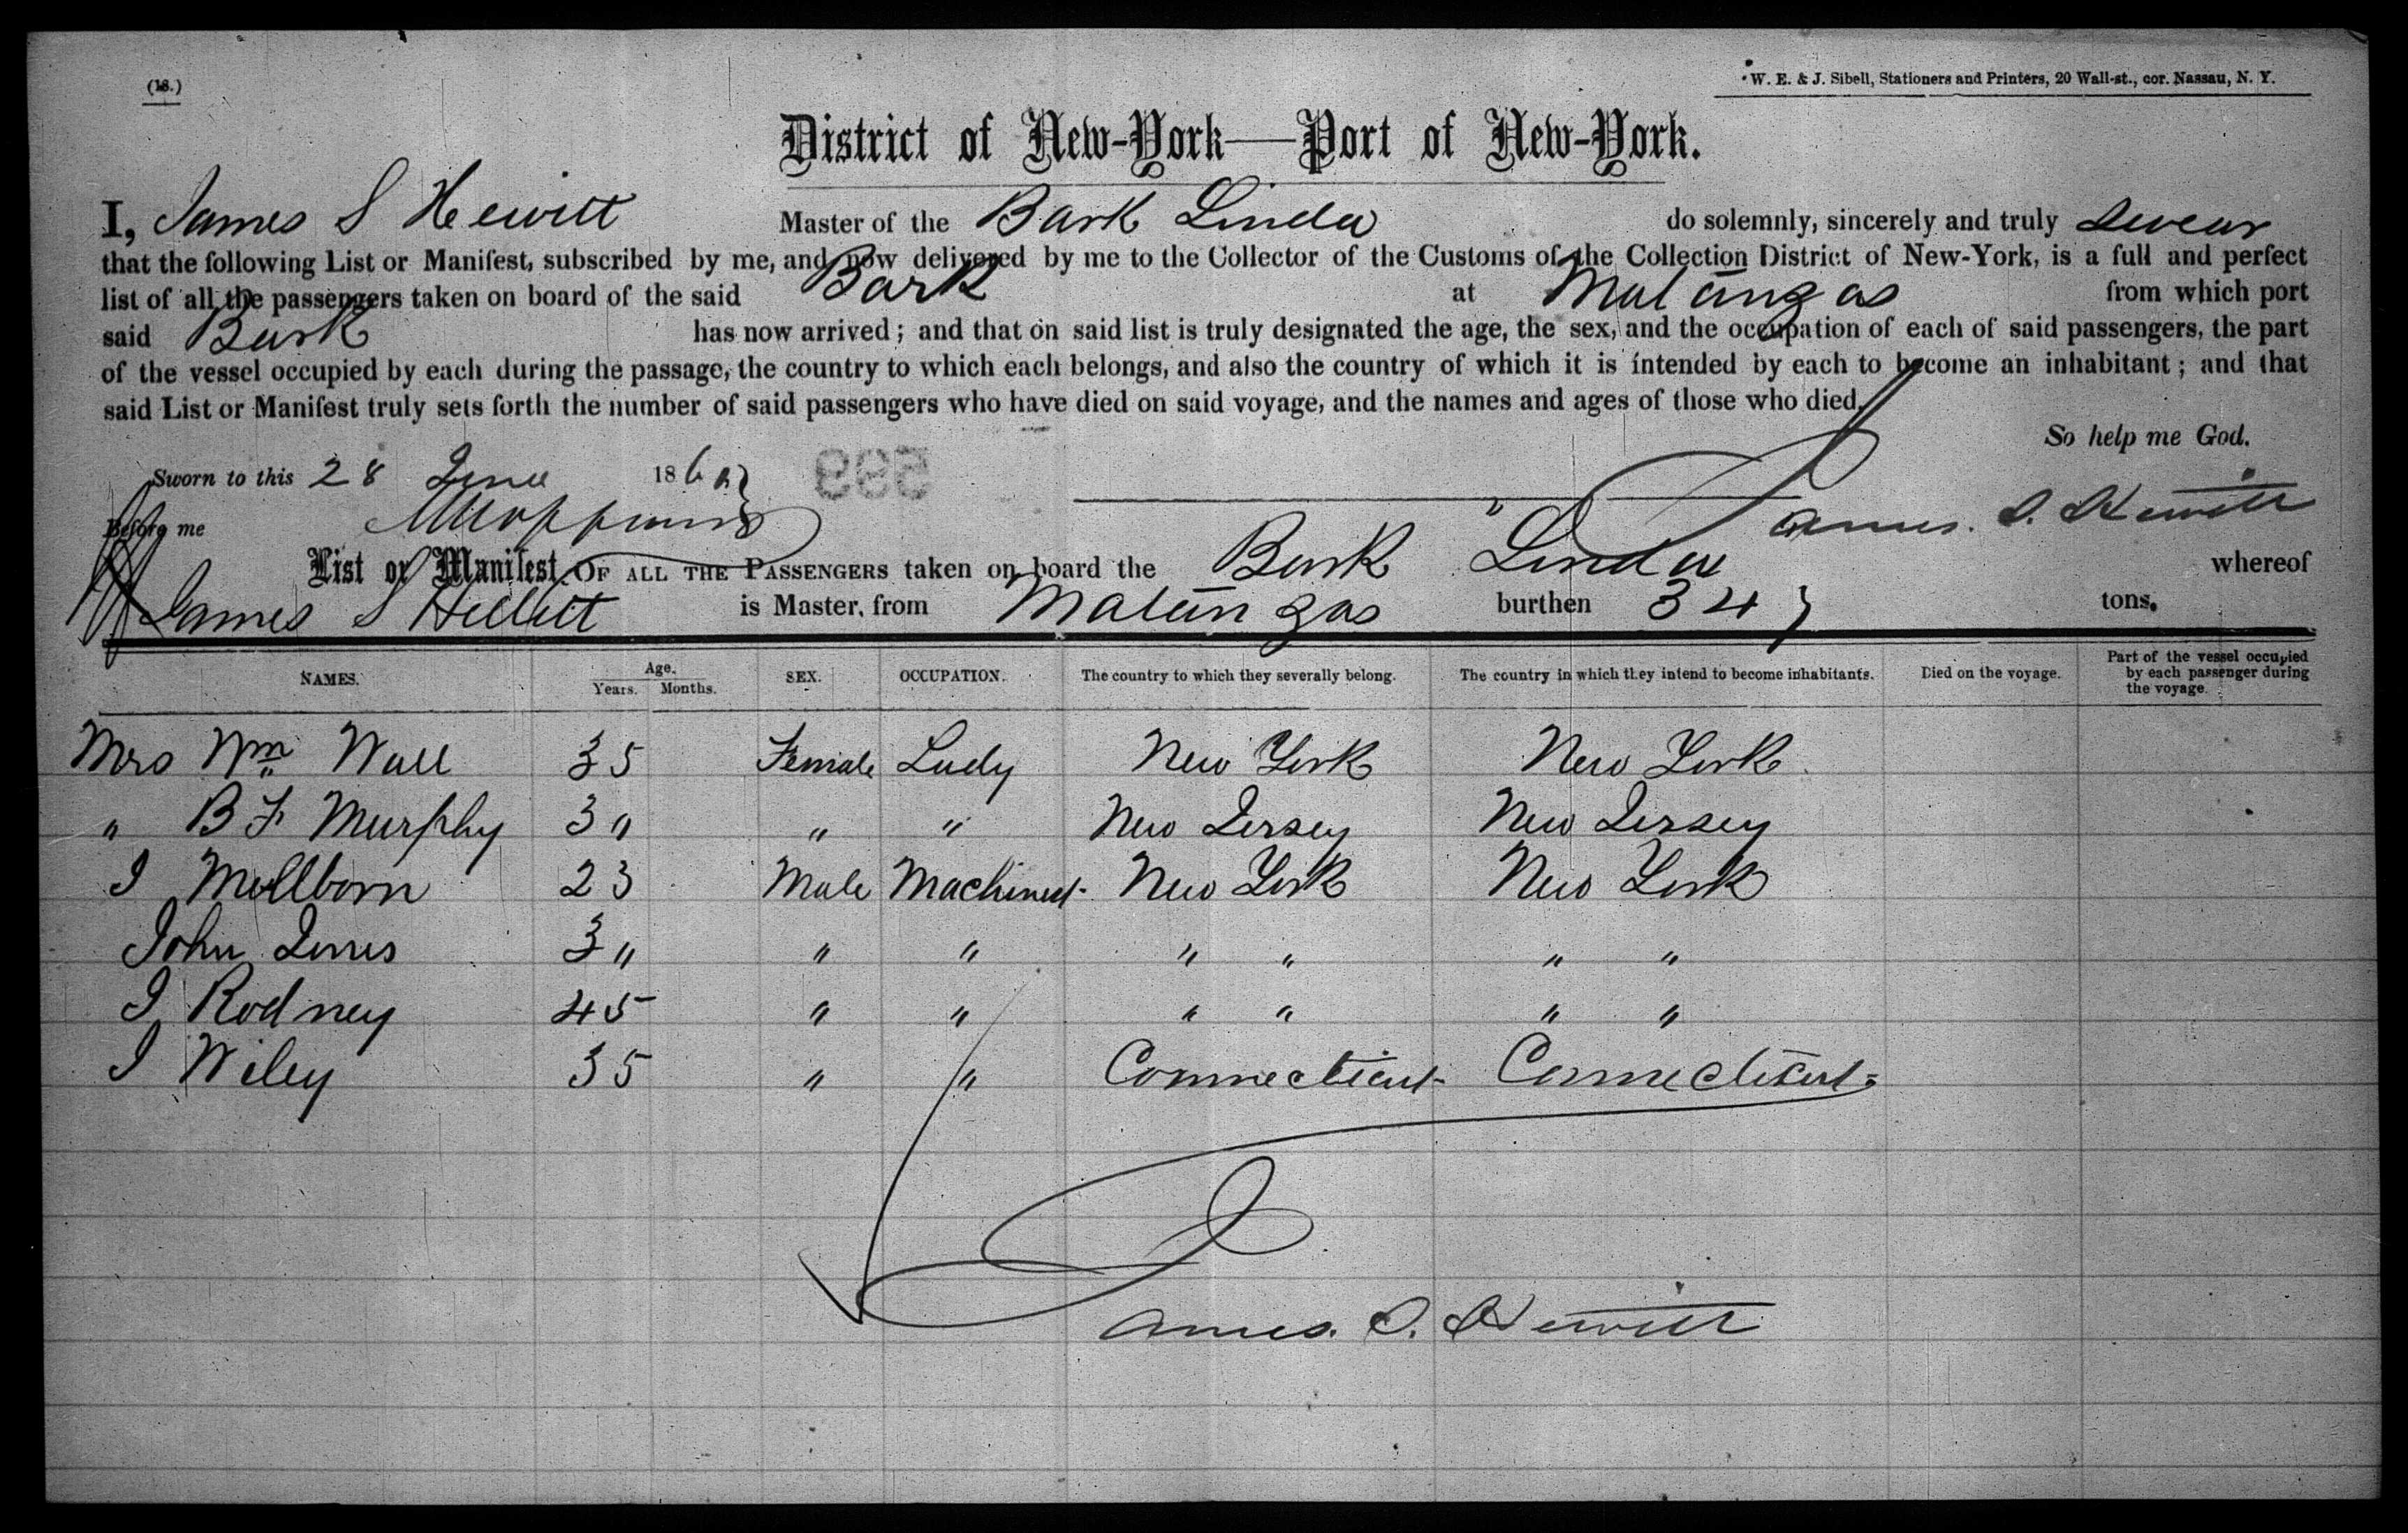 (18.)
W. E. & J. Sibell, Stationers and Printers, 20 Wall-st., cor. Nassau, N. Y.
District of New-York—Port of New-York.
I, James S Hewitt Master of the Bark Linda do solemnly, sincerely and truly swear
that the following List or Manifest, subscribed by me, and now delivered by me to the Collector of the Customs of the Collection District of New-York, is a full and perfect
list of all the passengers taken on board of the said Bark at Matanzas from which port
said Bark has now arrived; and that on said list is truly designated the age, the sex, and the occupation of each of said passengers, the part
of the vessel occupied by each during the passage, the country to which each belongs, and also the country of which it is intended by each to become an inhabitant; and that
said List or Manifest truly sets forth the number of said passengers who have died on said voyage, and the names and ages of those who died.
So help me God.
Sworn to this 28 June 186
James. S. Hewitt
Before me
List or Manifest OF ALL THE PASSENGERS taken on board the Bark Linda whereof
James S is Master, from Matanzas burthen 347 tons.
NAMES. Age. Years. Months. SEX. OCCUPATION. The country to which they severally belong. The country in which they intend to become inhabitants. Died on the voyage. Part of the vessel occupied by each passenger during the voyage.
Mrs Wm Wall 35 Female Lady New York New York
" B F Murphy 30 " " New Jersey New Jersey
J Mellborn 23 Male Machinist New York New York
John Jones 30 " " " " " "
J Rodney 45 " " " " " "
J Wiley 35 " " Connecticut Connecticut
James. S. Hewitt